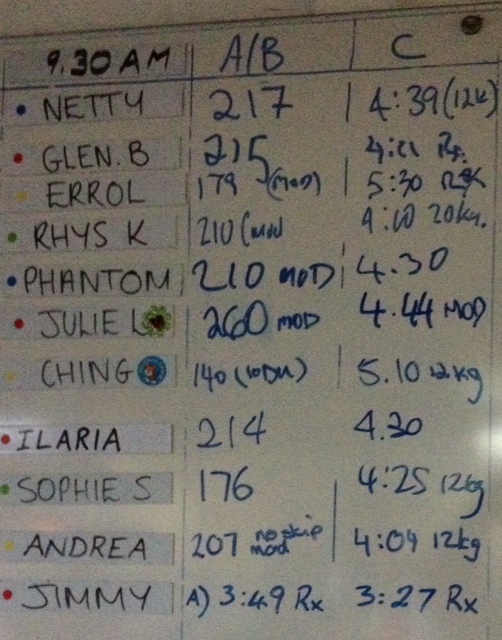 9.30 AM A/B C
NETTY 217 4:39 (12k)
GLEN.B 215 4:21 Rx
ERROL 179 (MOD) 5:30
RHYS K 210 (mod 4:10 20kg.
PHANTOM 210 MOD 4.30
JULIE L 260 MOD 4.44 MOD
CHING 140 5.10 12kg
ILARIA 214 4.30
SOPHIE S 176 4:25 12kg
ANDREA 207 no skip mod 4:04 12kg
JIMMY A) 3:49 Rx 3:27 Rx